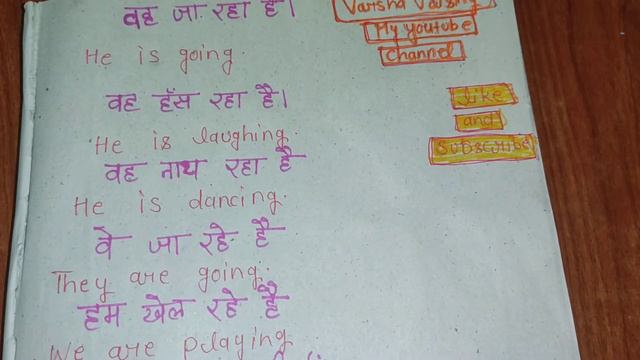 वह जा रहा है।
Varsha
My youtube
channel
He is going.
वह हँस रहा है।
like
and
SUBSCRIBE
He is laughing.
वह नाच रहा है
He is dancing.
वे जा रहे है
They are going.
हम खेल रहे है
We are playing